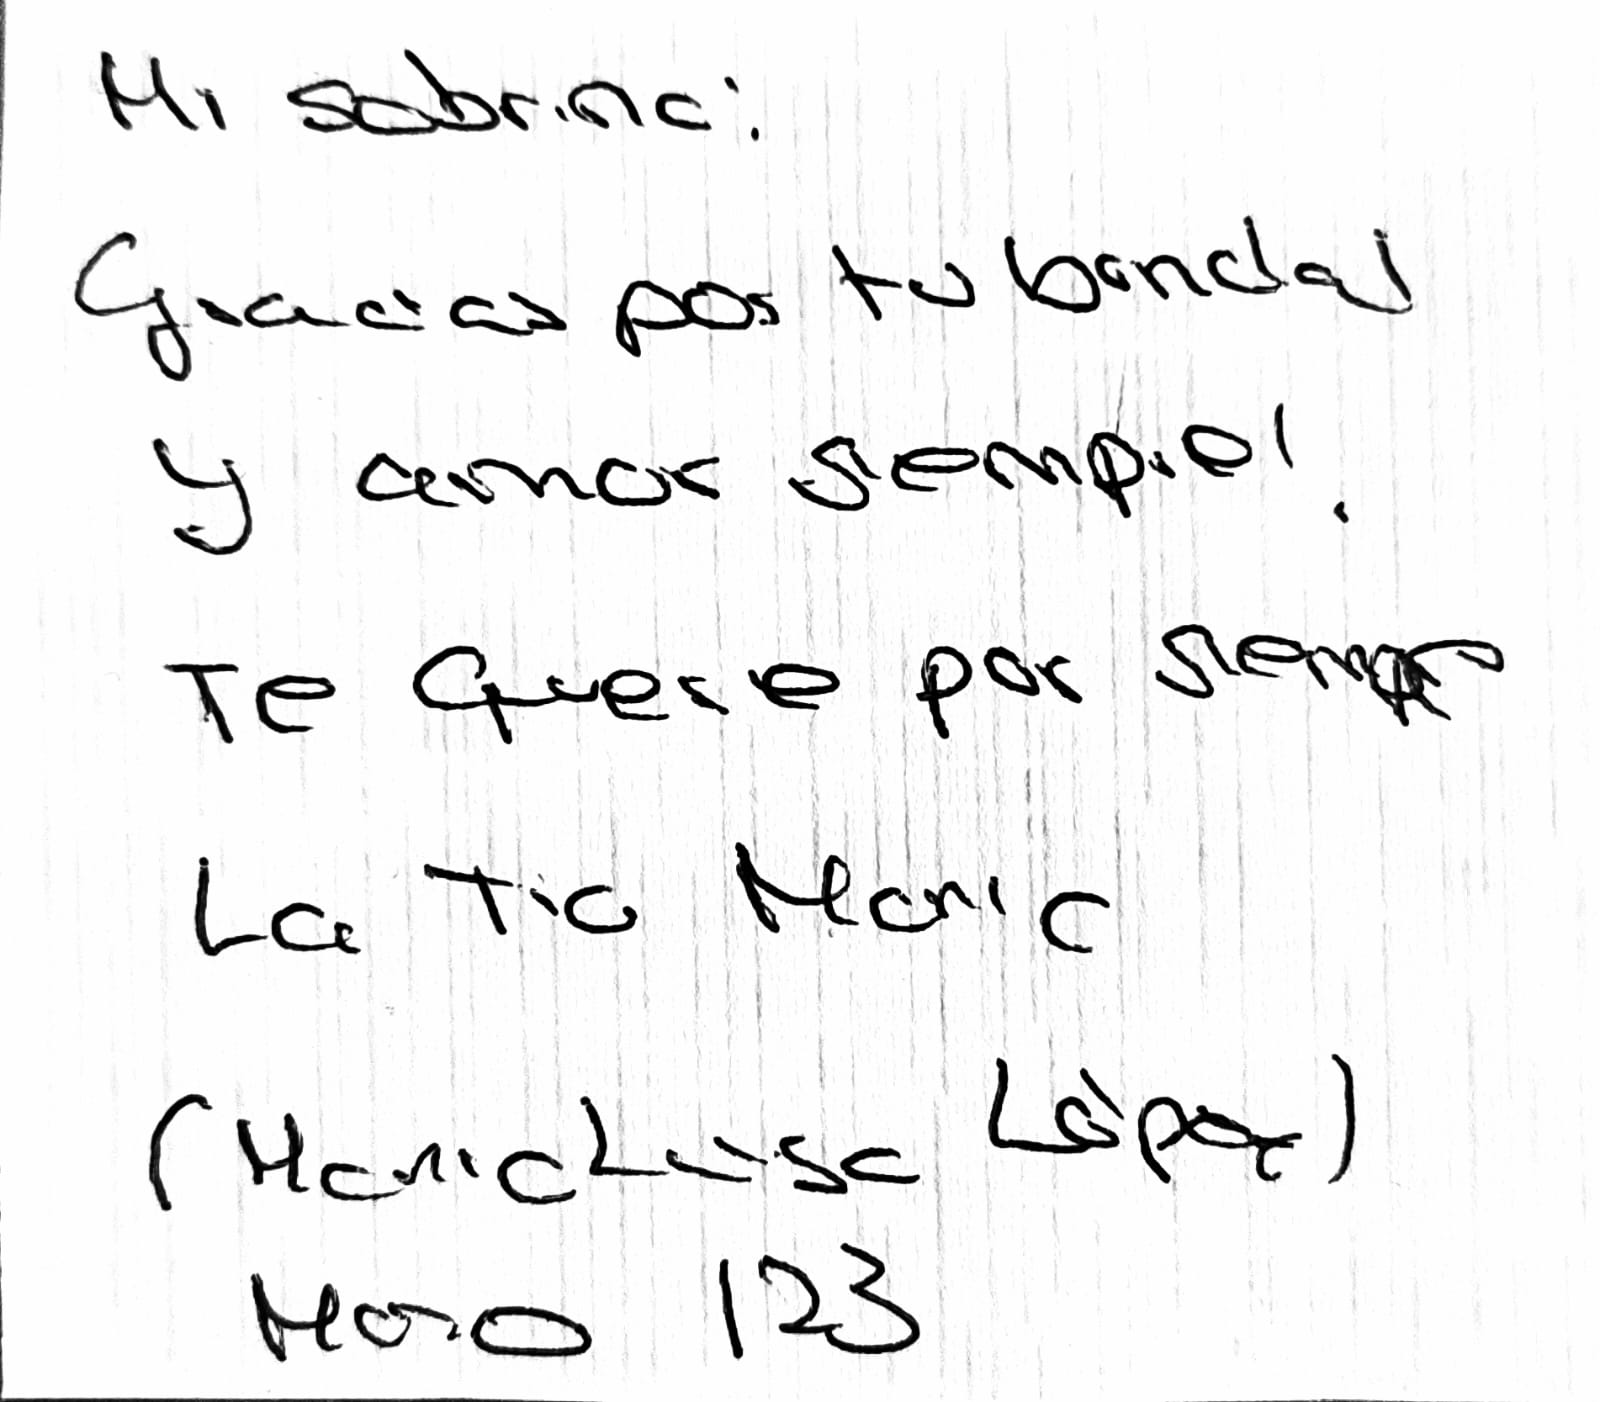 Mi sobrina:
Gracias por tu bondad
y amor siempre!
Te quiere por siempre
La Tia Maria
(Maria Luisa López)
Moro 123